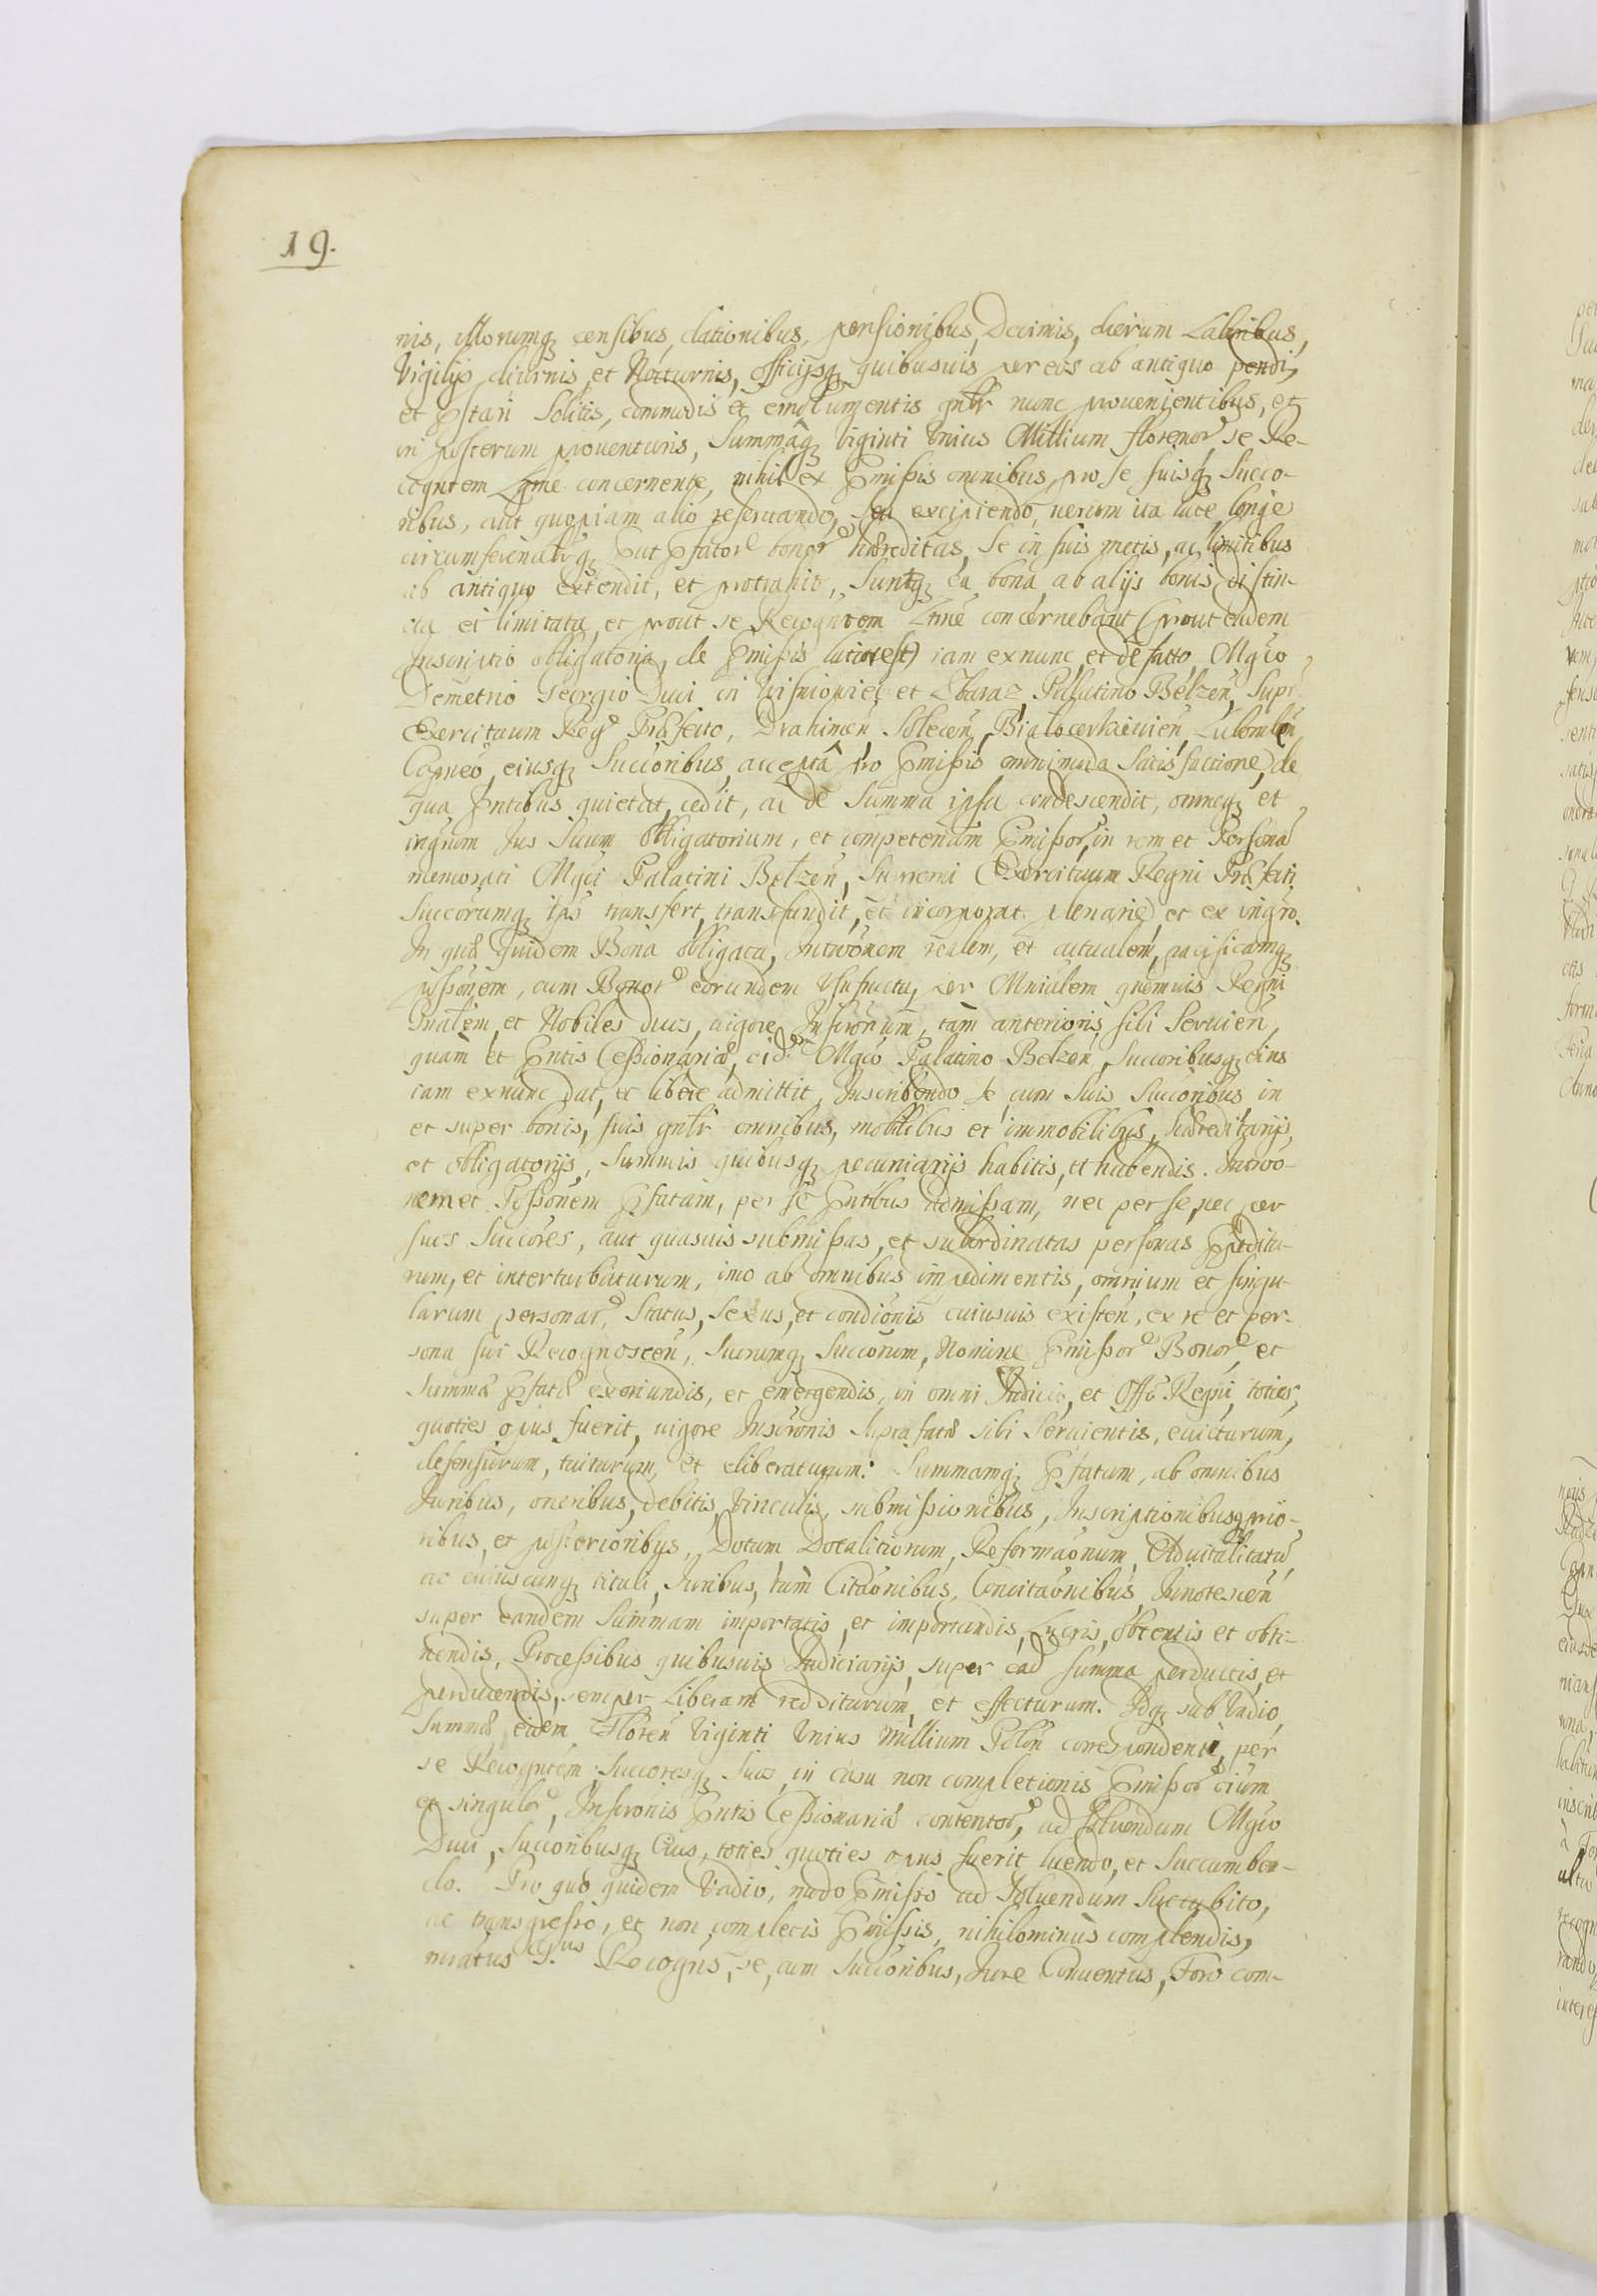 19.
nis, illorumq censibus, dationibus, pensionibus, Decimis, dierum Laboribus,
Vigilijs diurnis, et Nocturnis, Officijsq quibusuis per eos ab antiquo pendi,
et pstari Solitis, commodis et emolumentis gnlr nunc prouenientibus, et
in posterum prouenturis, Summaq Viginti Vnius Millium florenor se Re-
cogntem Lgme concernente, nihil ex pmissis omnibus, pro se suisq Succo-
ribus, aut quopiam alio reseruando, seu excipiendo, uerum ita late longe
circumferenarq put pfator bonor hæreditas, se in suis metis, ac limitibus
ab antiquo extendit, et protrahit, suntq ea bona, ab alijs bonis distin-
cta et limitata, et prout se Recogntem Ltme concernebant (prout eadem
Inscriptio obligatoria, de pmissis latior est) iam exnunc et de facto Mgco
Demetrio Georgio Duci in Wisniowiec et Zbaraz, Pallatino Belzen, Supr
Exercituum Reg Præfecto, Drahimen Solecen, Bialocerkiewien, Lubomlen
Capneo, eiusq Succoribus, acceptâ pro pmissis omnimoda Satisfactione, de
qua pntibus quietat, cedit, ac de Summa ipsa condescendit, omneq et
ingrum Jus Suum obligatorium, et competentium pmissor, in rem et Personã
memorati Mgci Palatini Belzen, Supremi Exercituum Regni Præfecti,
Succorumq ips transfert, transfundit, et incorporat plenarie et ex ingro.
In quæ quidem Bona obligata, Intronem realem, et actualem, pacificamq
possonem, cum Bonor eorundem Vsufructu, per Mnialem quemuis Regni
Gnalem, et Nobiles duos, uigore Inscronum, tàm anterioris, sibi Seruien,
quàm et pntis Cessionariæ, eid Mgco Palatino Belzen, Succoribusq eius
iam exnunc dat, et libere admittit, Inscribendo se cum Suis Succoribus in
et super bonis, suis gnlr omnibus, mobilibus et immobilibus, hæreditarijs,
et obligatorijs, Summis quibusq pecuniarijs habitis, et habendis. Intro-
nem et Possonem pfatam, per se pntibus admissam, nec per se, nec per
suos Succores, aut quasuis submissas, et subordinatas personas ppeditu-
rum, et interturbaturum, imo ab omnibus impedimentis, omnium et singu-
larum personar, Status, Sexus, et condionis cuiusuis existen, ex re et per-
sona sui Recognoscen, Suorumq Succorum, Nomine pmissor Bonor, et
Summæ pfatæ exoriundis, et emergendis, in omni Judicio, et Offo Regni, toties,
quoties opus fuerit, uigore Inscronis supra fatæ sibi Seruientis, euicturum,
defensurum, tuiturum, et eliberaturum. Summamq pfatam, ab omnibus
Juribus, oneribus, debitis, Vinculis, submissionibus, Inscriptionibusq prio-
ribus, et posterioribus, Dotum Dotalitiorum, Reformaonum, Aduitalitatũ,
ac cuiuscunq tituli, Juribus, tàm Citaonibus, Concitaonibus, Innotescen
super eandem Summam importatis, et importandis, Lucris, obtentis et obti-
nendis, Processibus quibusuis Judiciarijs, super ead summa perductis, et
perducendis, semper Liberam redditurum, et effecturum. Idq sub Vadio,
Summæ eidem Floren Viginti Vnius Millium Polon correspondenti, per
se Recogntem Succoresq Suos, in casu non completionis pmissor oium
et singulor, Inscronis pntis Cessionariæ contentor, ad soluendum Mgco
Duci, Succoribusq Eius, toties quoties opus fuerit luendo, et Succumben-
do. Pro quo quidem Vadio, modo pmisso ad soluendum Succubito,
ac transgresso, et non completis pmissis, nihilominùs complendis,
mratus G.us Recogns, se, cum Succoribus, Jure Conuentus, Foro com-